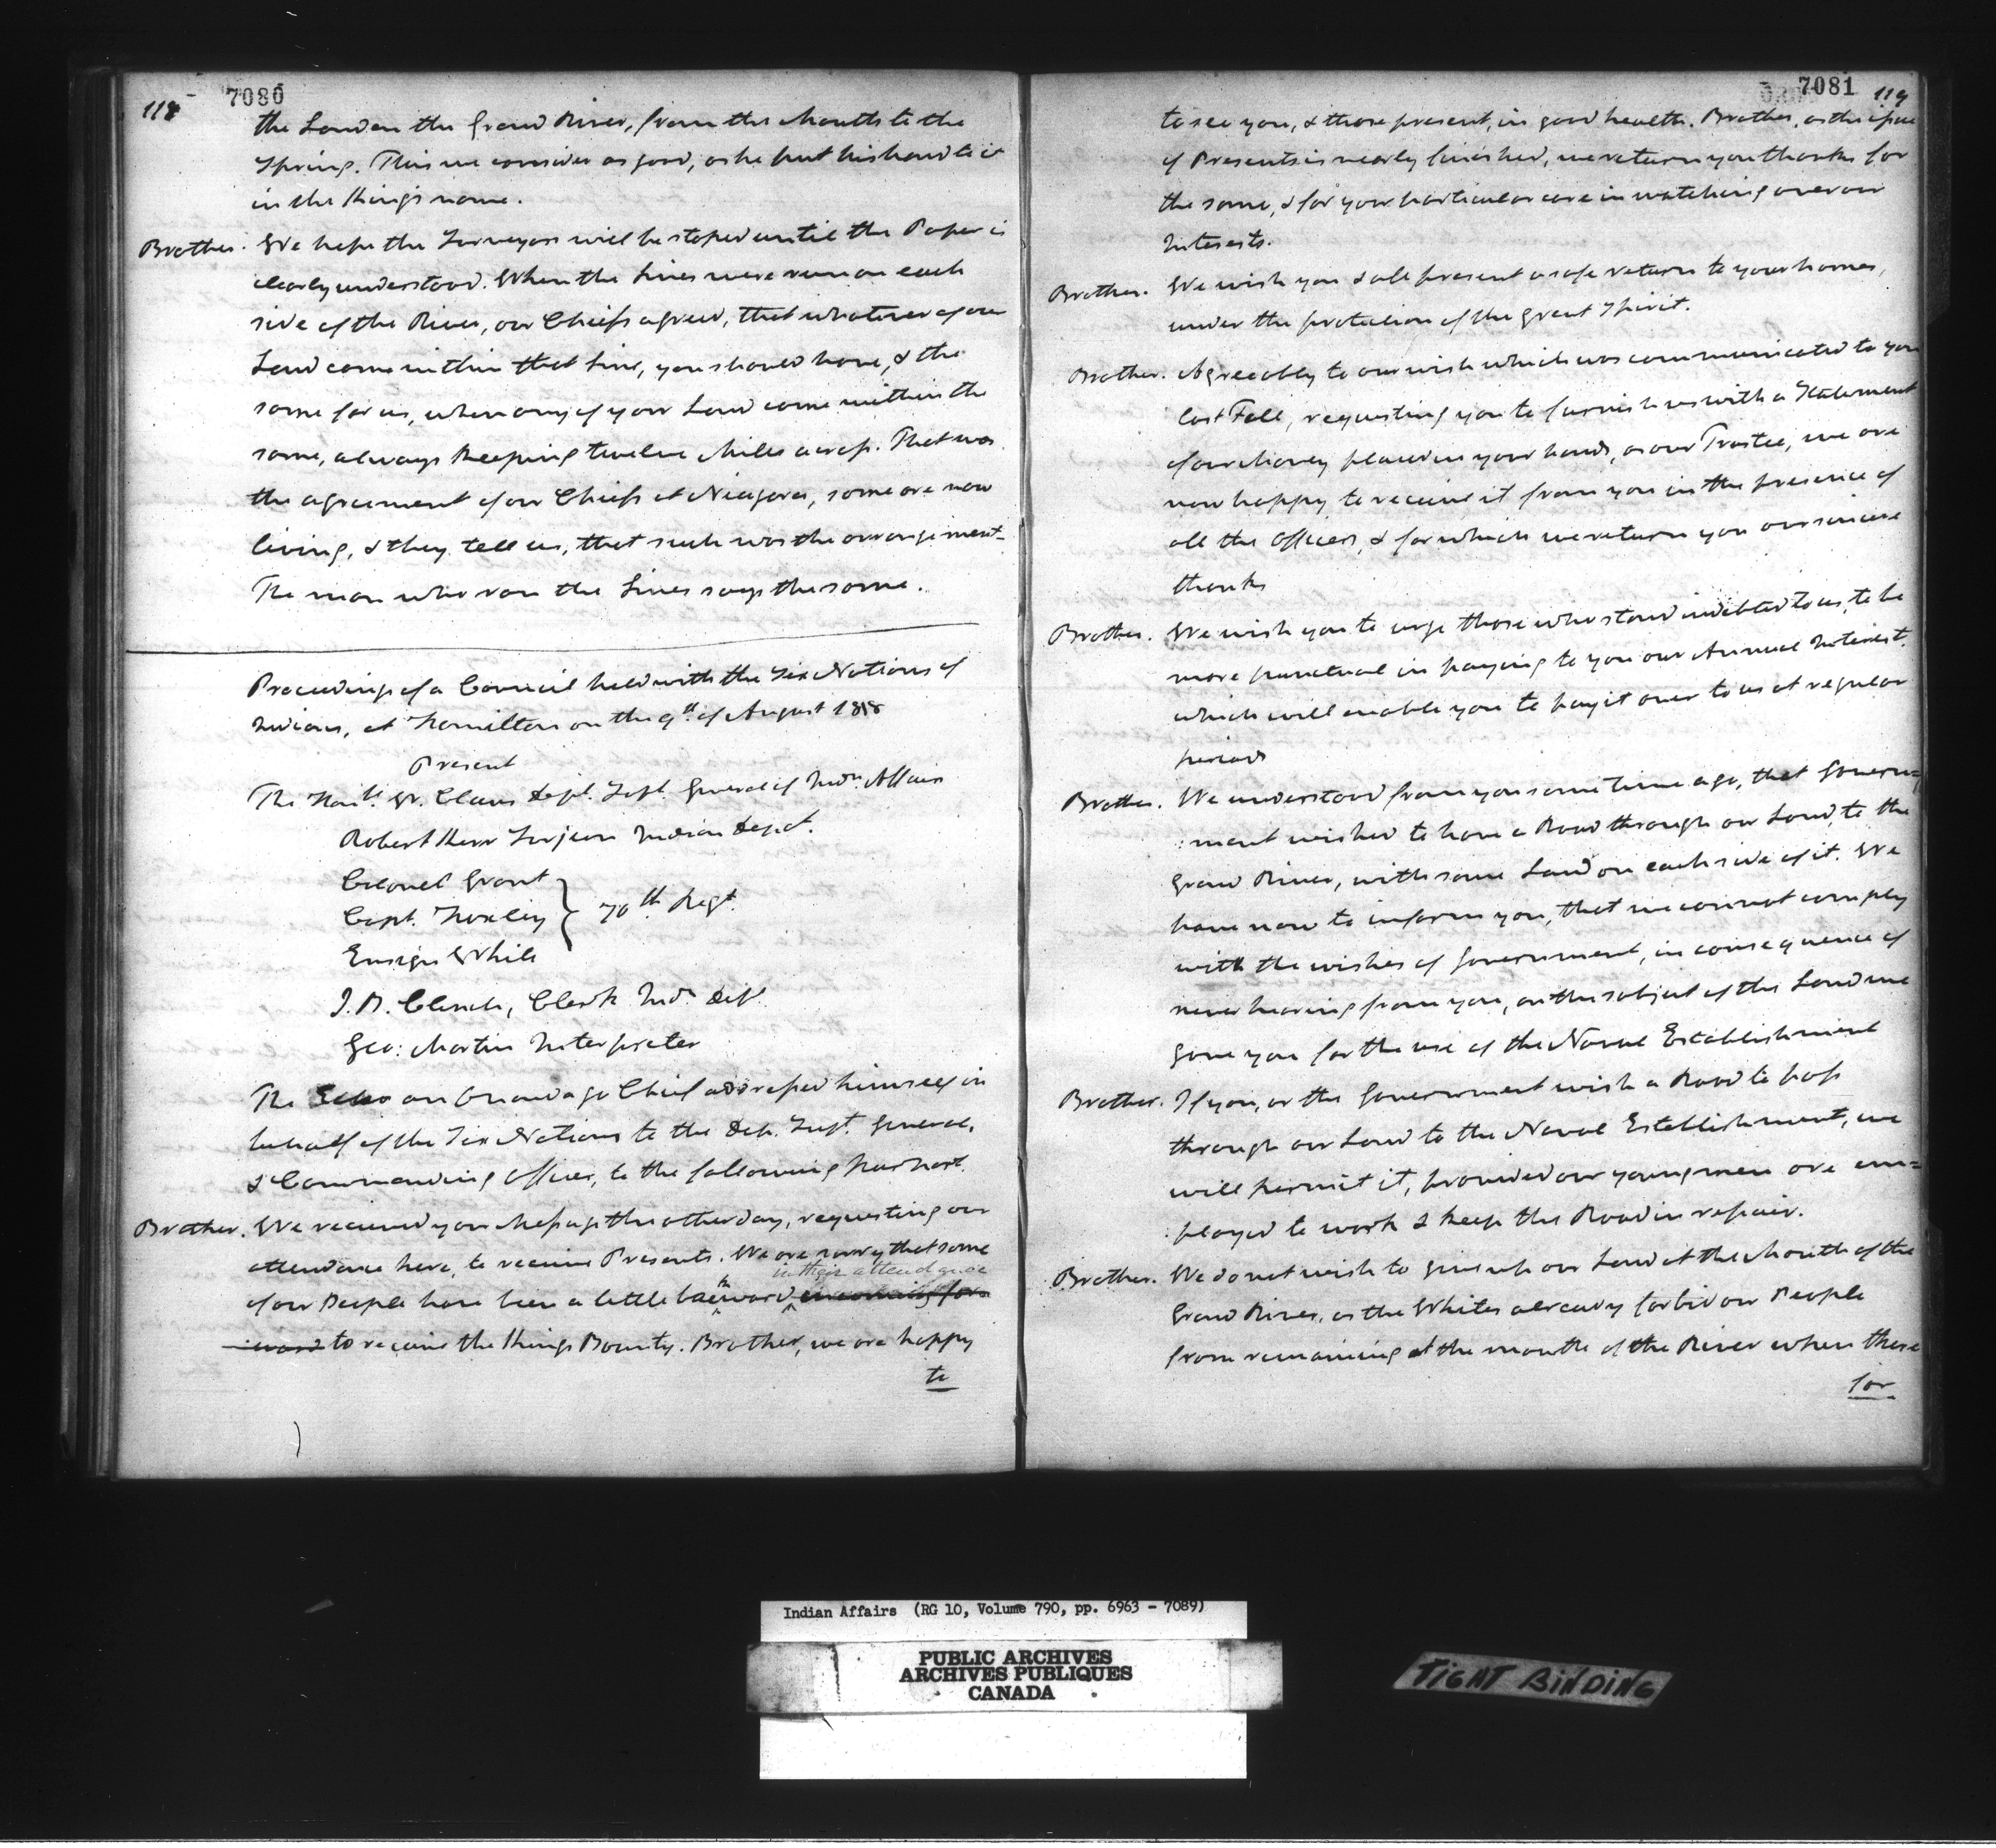 118 7080
the Land on the Grand River, from the Mouth to the
Spring. This we consider as good, as he put his hand to it
in the King's name.
Brother. We hope the Surveyors will be stoped until the Paper is
clearly understood. When the Lines were run on each
side of the River, our Chiefs agreed, that whatever of our
Land came within that Line, you should have, & the
same for us, when any of your Land came within the
same, always keeping twelve Miles across. That was
the agreement of our Chiefs at Niagara, some are now
living, & they tell us, that such was the arrangement.
The man who ran the Lines says the same.
Proceedings of a Council held with the Six Nations of
Indians, at Hamilton on the 9th. of August 1818
Present
The Honble. W. Claus Dept. Supt. General of Indn. Affairs
Robert Kerr Surjeon Indian Dept.
Colonel Grant
Capt. Huxley } 70th. Regt.
Ensign White
J.B. Clench, Clerk Ind. Dept.
Geo: Martin Interpreter
The Echo an Onondago Chief addressed himself in
behalf of the Six Nations to the Dep. Supt. General,
& Commanding Officer, to the following purport.
Brother. We received your Message the other day, requesting our
attendance here, to receive Presents. We are sorry that some
in their attendance
of our People have been a little backward in coming for-
ward to receive the Kings Bounty. Brother, we are happy
to
7081 119
to see you, & those present, in good health. Brother, as the issue
of Presents is nearly finished, we return you thanks for
the same, & for your particular care in watching over our
Interests.
Brother. We wish you & all present a safe return to your homes,
under the protection of the Great Spirit.
Brother. Agreeably to our wish which was communicated to you
last Fall, requesting you to furnish us with a Statement
of our Money placed in your hands, as our Trustee, we are
now happy to receive it from you in the presence of
all the Officers, & for which we return you our sincere
thanks
Brother. We wish you to urge those who stand indebted to us, to be
more punctual in paying to you our Annual Interest,
which will enable you to pay it over to us at regular
periods
Brother. We understood from you some time ago, that Govern=
:ment wished to have a Road through our Land, to the
Grand River, with some Land on each side of it. We
have now to inform you, that we cannot comply
with the wishes of Government, in consequence of
never hearing from you, on the subject of the Land we
gave you for the use of the Naval Establishment
Brother. If you, or the Government wish a Road to pass
through our Land to the Naval Establishment, we
will permit it, provided our young men are em=
:ployed to work & keep the Road in repair.
Brother. We do not wish to give up our Land at the Mouth of the
Grand River, as the Whites already forbid our People
from remaining at the mouth of the River when there
for
Indian Affairs (RG 10, Volume 790, pp. 6963 - 7089)
PUBLIC ARCHIVES
ARCHIVES PUBLIQUES
CANADA
TIGHT BINDING